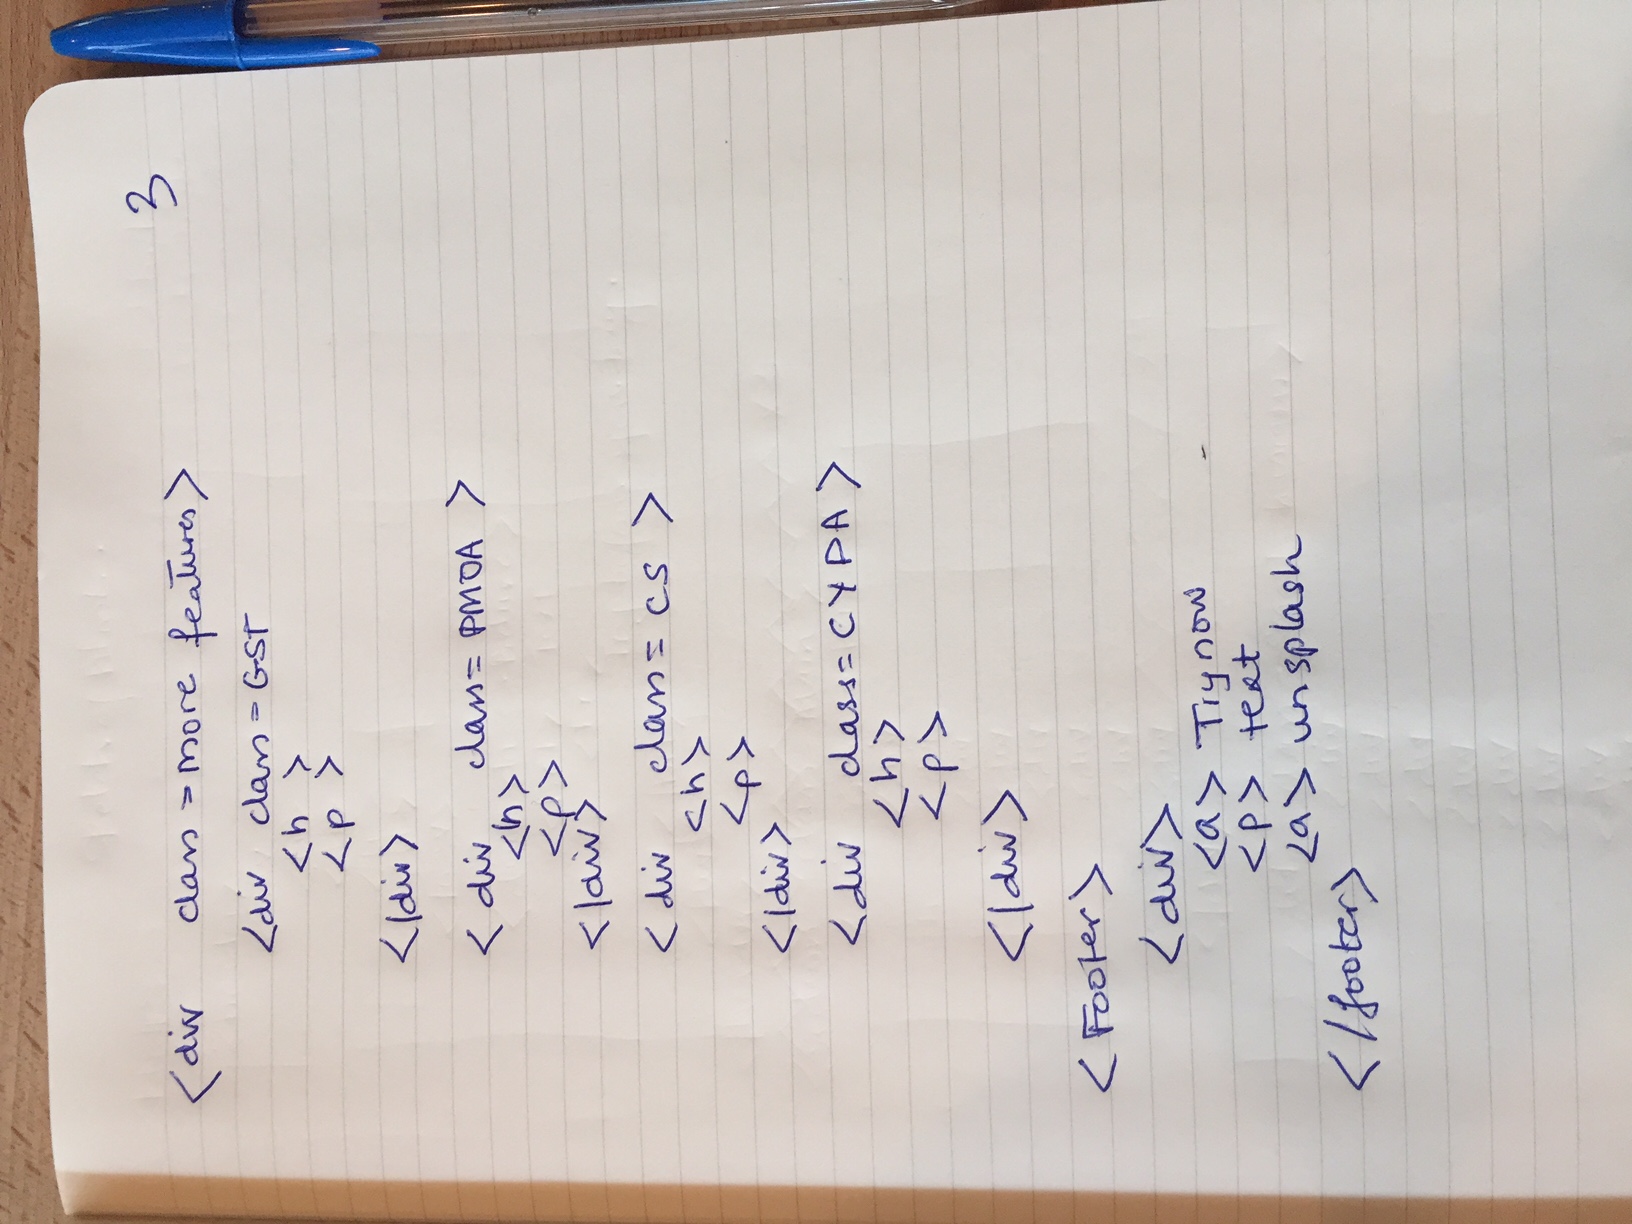 3
<div class = more features>
<div class = GST
<h >
<p >
</div>
<div class = PMOA >
<h>
<p>
</div>
<div class = CS >
<h>
<p>
</div>
<div class = CYPA >
<h>
<p>
</div>
<Footer>
<div>
<a> Try now
<p> text
<a> unsplash
</footer>